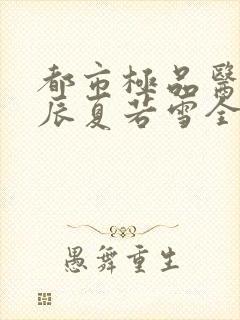 都市極品醫
辰夏若雪全
愚舞重生